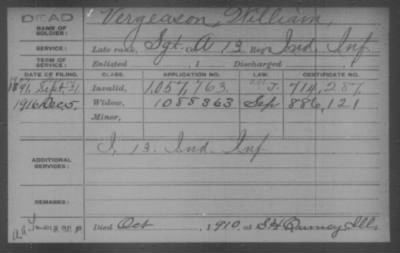 DEAD
NAME OF SOLDIER: Vergeason, William,
SERVICE: Late rank, Sgt. A 13 Reg't Ind. Inf.
TERM OF SERVICE: Enlisted , 1 Discharged , 1
DATE OF FILING. CLASS. APPLICATION NO. LAW. CERTIFICATE NO.
1891, Sept. Invalid, 1,057,763. J. 714,287
1916 Dec. 5, Widow, 1088363 Sep 886,121
Minor,
ADDITIONAL SERVICES: I, 13. Ind. Inf
REMARKS:
Died Oct , 1910, at Ill.